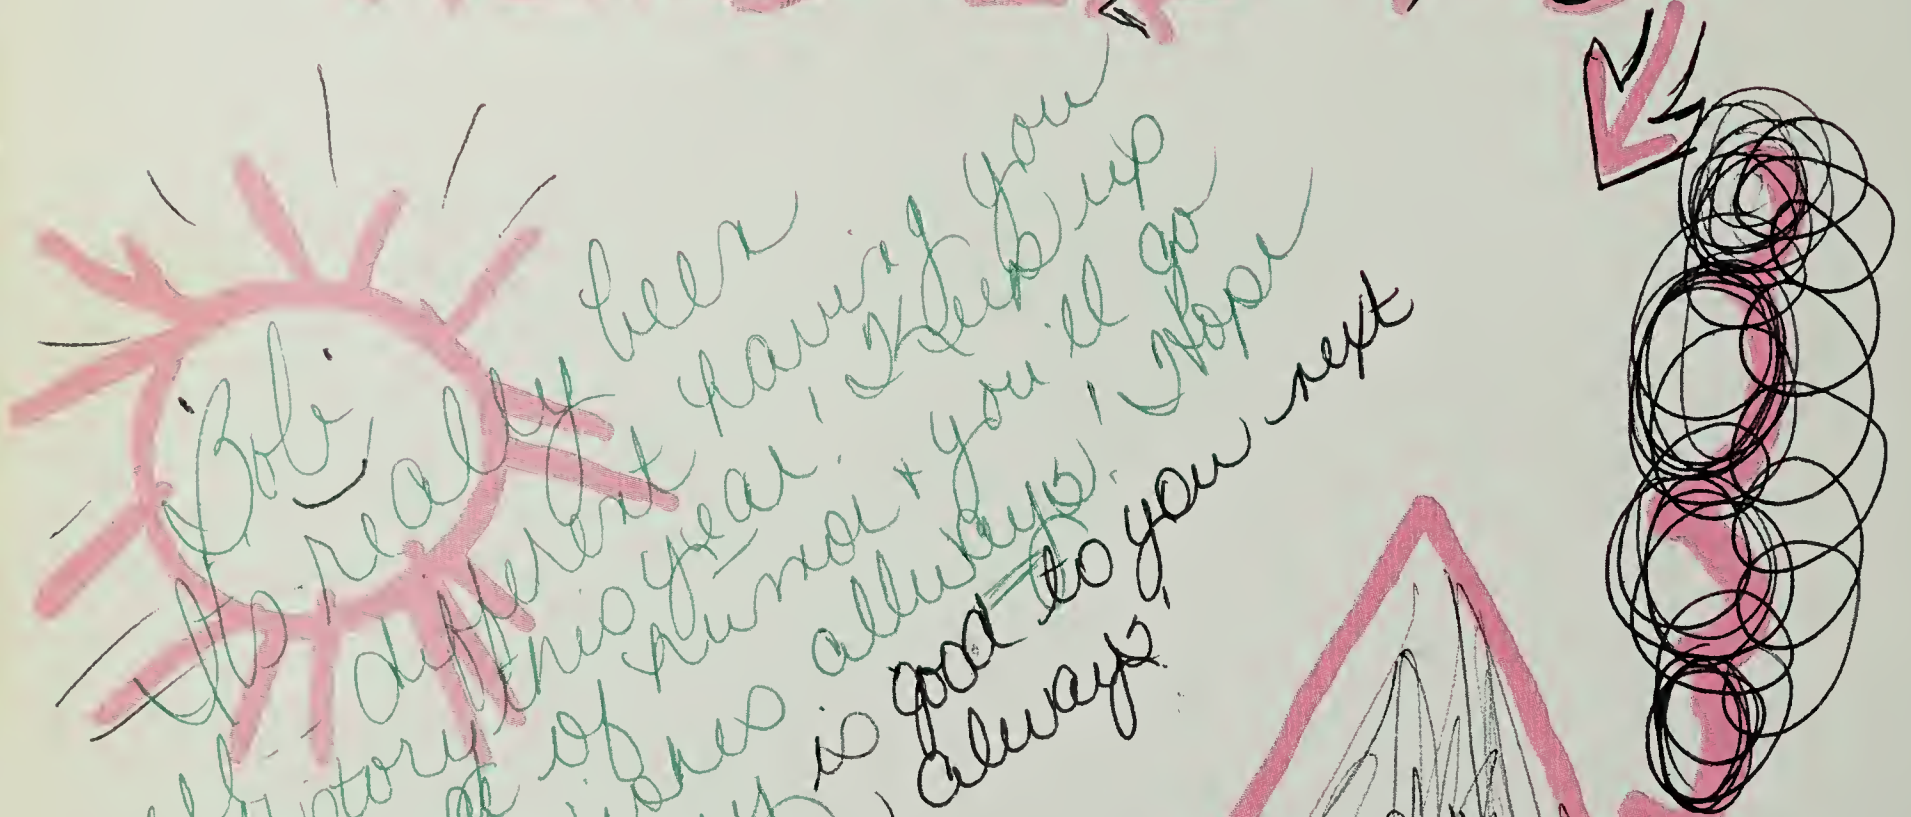 Bob,
It's really been
different having you
history this year! Keep up
of humor + you'll go
wishes allways! Hope
is good to you next
always!